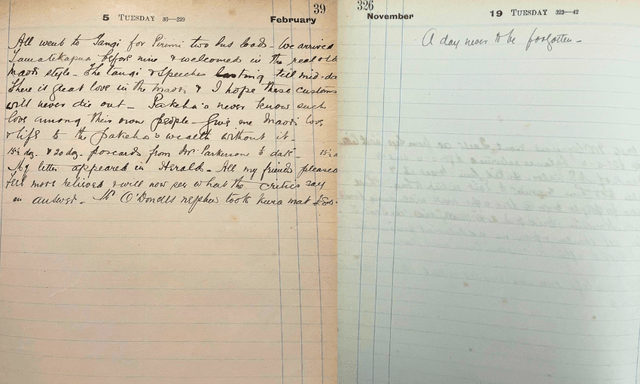 5 TUESDAY 36-329
February
39
All went to Tangi for Pirimi two bus loads - We arrived
Tamatekapua before nine & welcomed in the real old
Maori style - The tangi & speeches lasting till mid-day
There is great love in the Maori & I hope these customs
will never die out - Pakeha's never know such
love among their own people - Give me Maori love
& life to the pakeha's wealth without it.
& 20 doz. postcards from Mr Parkerson to date -
My letter appeared in Herald - All my friends pleased
Feel more relieved & will now see what the critics say
in answer - Mr O'Donnells nephew took kura mat
326
November
19 TUESDAY 323-42
A day never to be forgotten -